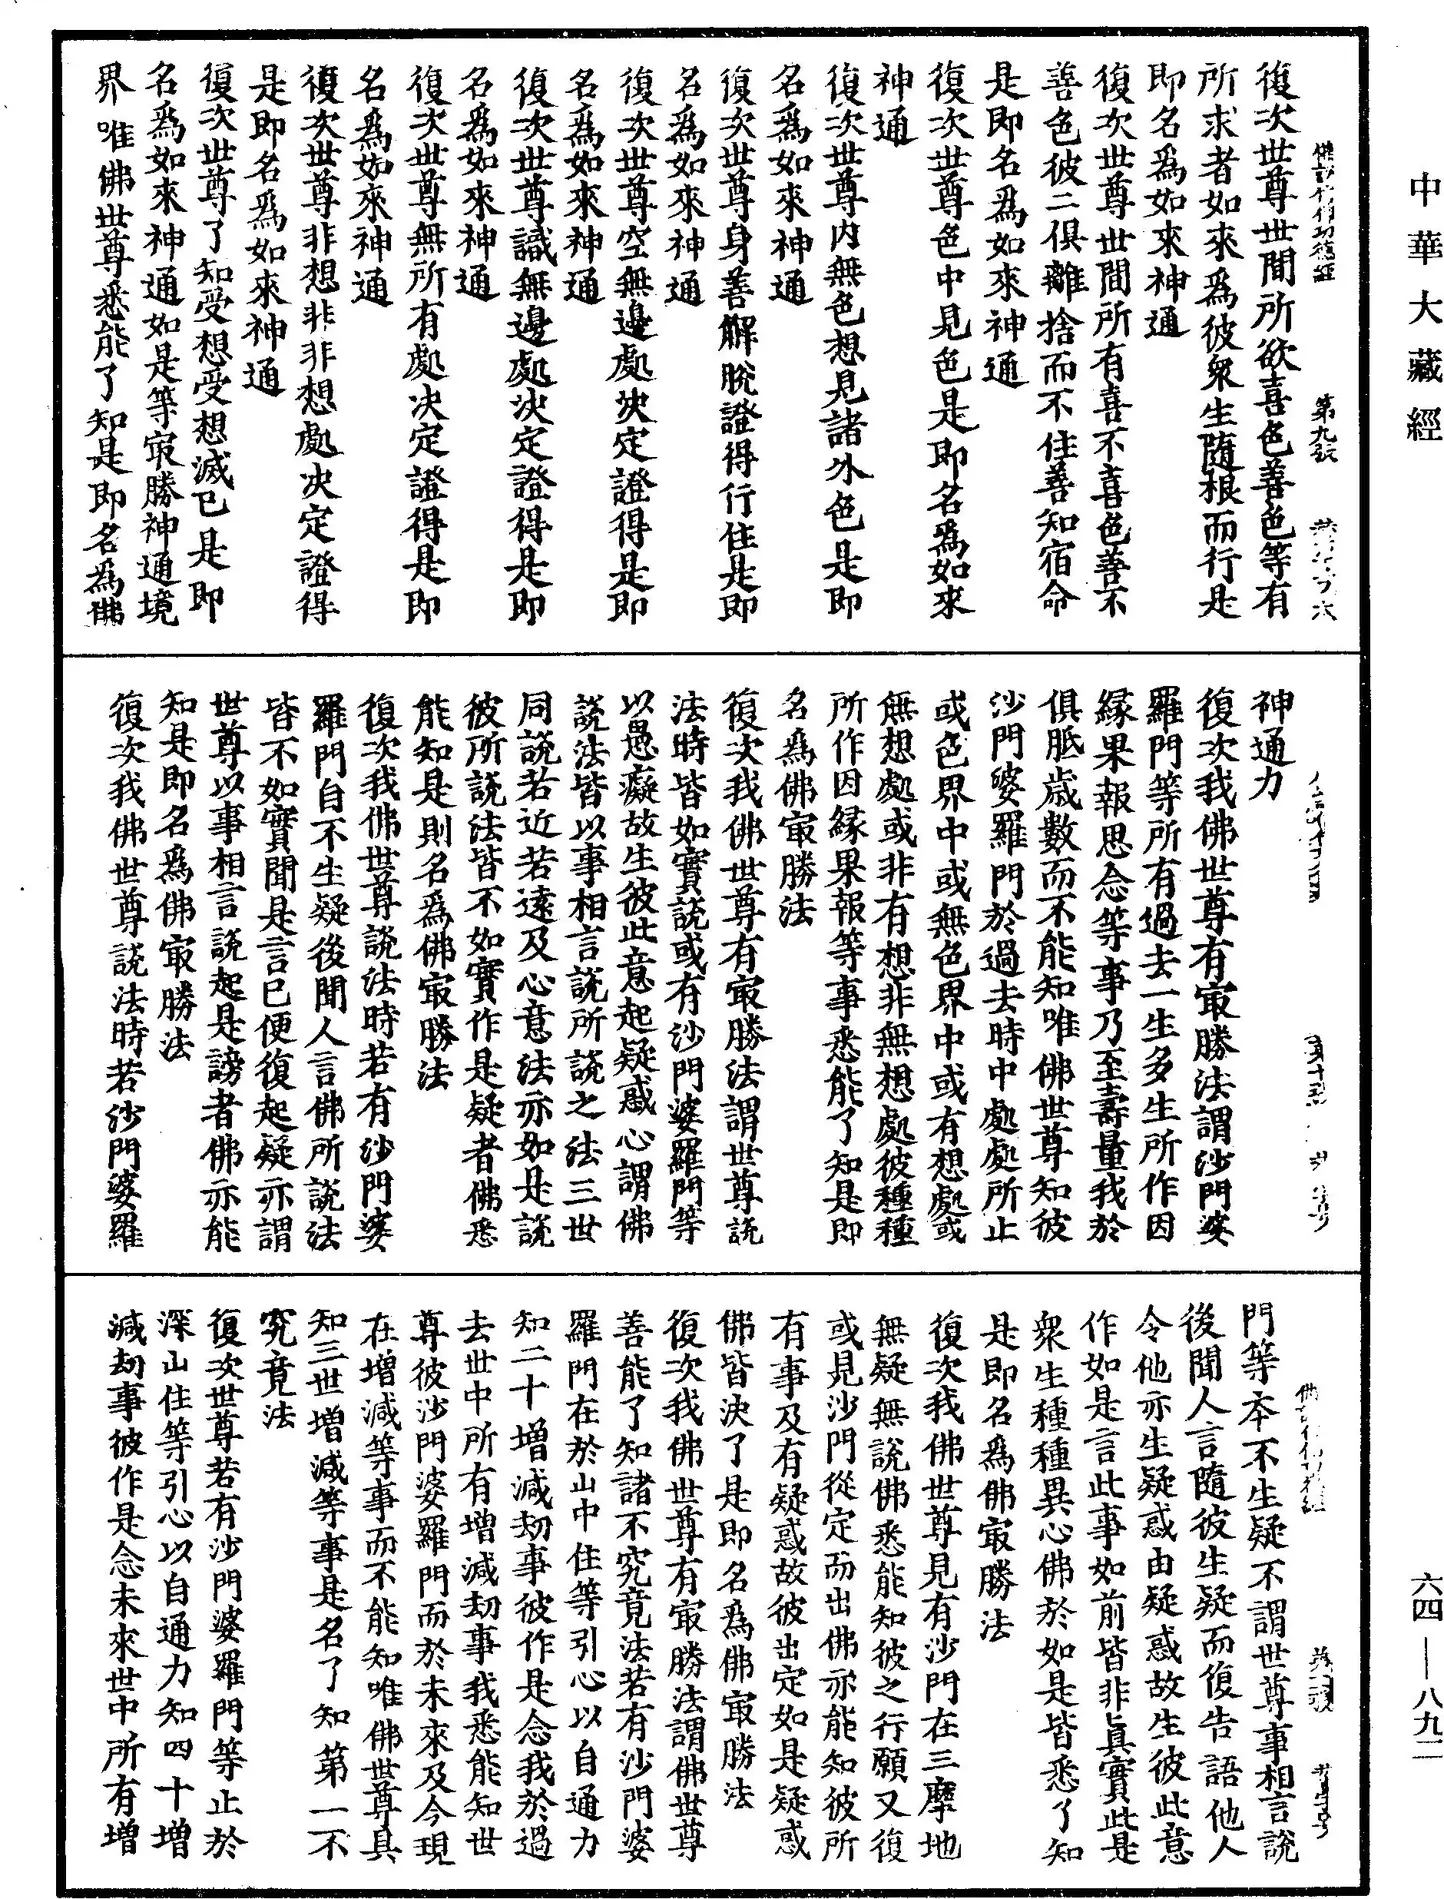 中華大藏經
復次世尊世間所欲喜色善色等有
所求者如來爲彼衆生隨根而行是
即名爲如來神通
復次世尊世間所有喜不喜色善不
善色彼二俱離捨而不住善知宿命
是即名爲如來神通
復次世尊色中見色是即名爲如來
神通
復次世尊内無色想見諸外色是即
名爲如來神通
復次世尊身善解脫證得行住是即
名爲如來神通
復次世尊空無邊處決定證得是即
名爲如來神通
復次世尊識無邊處決定證得是即
名爲如來神通
復次世尊無所有處決定證得是即
名爲如來神通
復次世尊非想非非想處決定證得
是即名爲如來神通
復次世尊了知受想受想滅已是即
名爲如來神通如是等㝡勝神通境
界唯佛世尊悉能了知是即名爲佛
神通力
復次我佛世尊有㝡勝法謂沙門婆
羅門等所有過去一生多生所作因
緣果報思念等事乃至壽量我於
俱胝歲數而不能知唯佛世尊知彼
沙門婆羅門於過去時中處處所止
或色界中或無色界中或有想處或
無想處或非有想非無想處彼種種
所作因緣果報等事悉能了知是即
名爲佛㝡勝法
復次我佛世尊有㝡勝法謂世尊說
法時皆如實說或有沙門婆羅門等
以愚癡故生彼此意起疑惑心謂佛
說法皆以事相言說所說之法三世
同說若近若遠及心意法亦如是說
彼所說法皆不如實作是疑者佛悉
能知是則名爲佛㝡勝法
復次我佛世尊說法時若有沙門婆
羅門自不生疑後聞人言佛所說法
皆不如實聞是言已便復起疑亦謂
世尊以事相言說起是謗者佛亦能
知是即名爲佛㝡勝法
復次我佛世尊說法時若沙門婆羅
門等本不生疑不謂世尊事相言說
後聞人言隨彼生疑而復告語他人
令他亦生疑惑由疑惑故生彼此意
作如是言此事如前皆非眞實此是
衆生種種異心佛於如是皆悉了知
是即名爲佛㝡勝法
復次我佛世尊見有沙門在三摩地
無疑無說佛悉能知彼之行願又復
或見沙門從定而出佛亦能知彼所
有事及有疑惑故彼出定如是疑惑
佛皆決了是即名爲佛㝡勝法
復次我佛世尊有㝡勝法謂佛世尊
善能了知諸不究竟法若有沙門婆
羅門在於山中住等引心以自通力
知二十增減劫事彼作是念我於過
去世中所有增減劫事我悉能知世
尊彼沙門婆羅門而於未來及今現
在增減等事而不能知唯佛世尊具
知三世增減等事是名了知第一不
究竟法
復次世尊若有沙門婆羅門等止於
深山住等引心以自通力知四十增
減劫事彼作是念未來世中所有增
六四—八九二